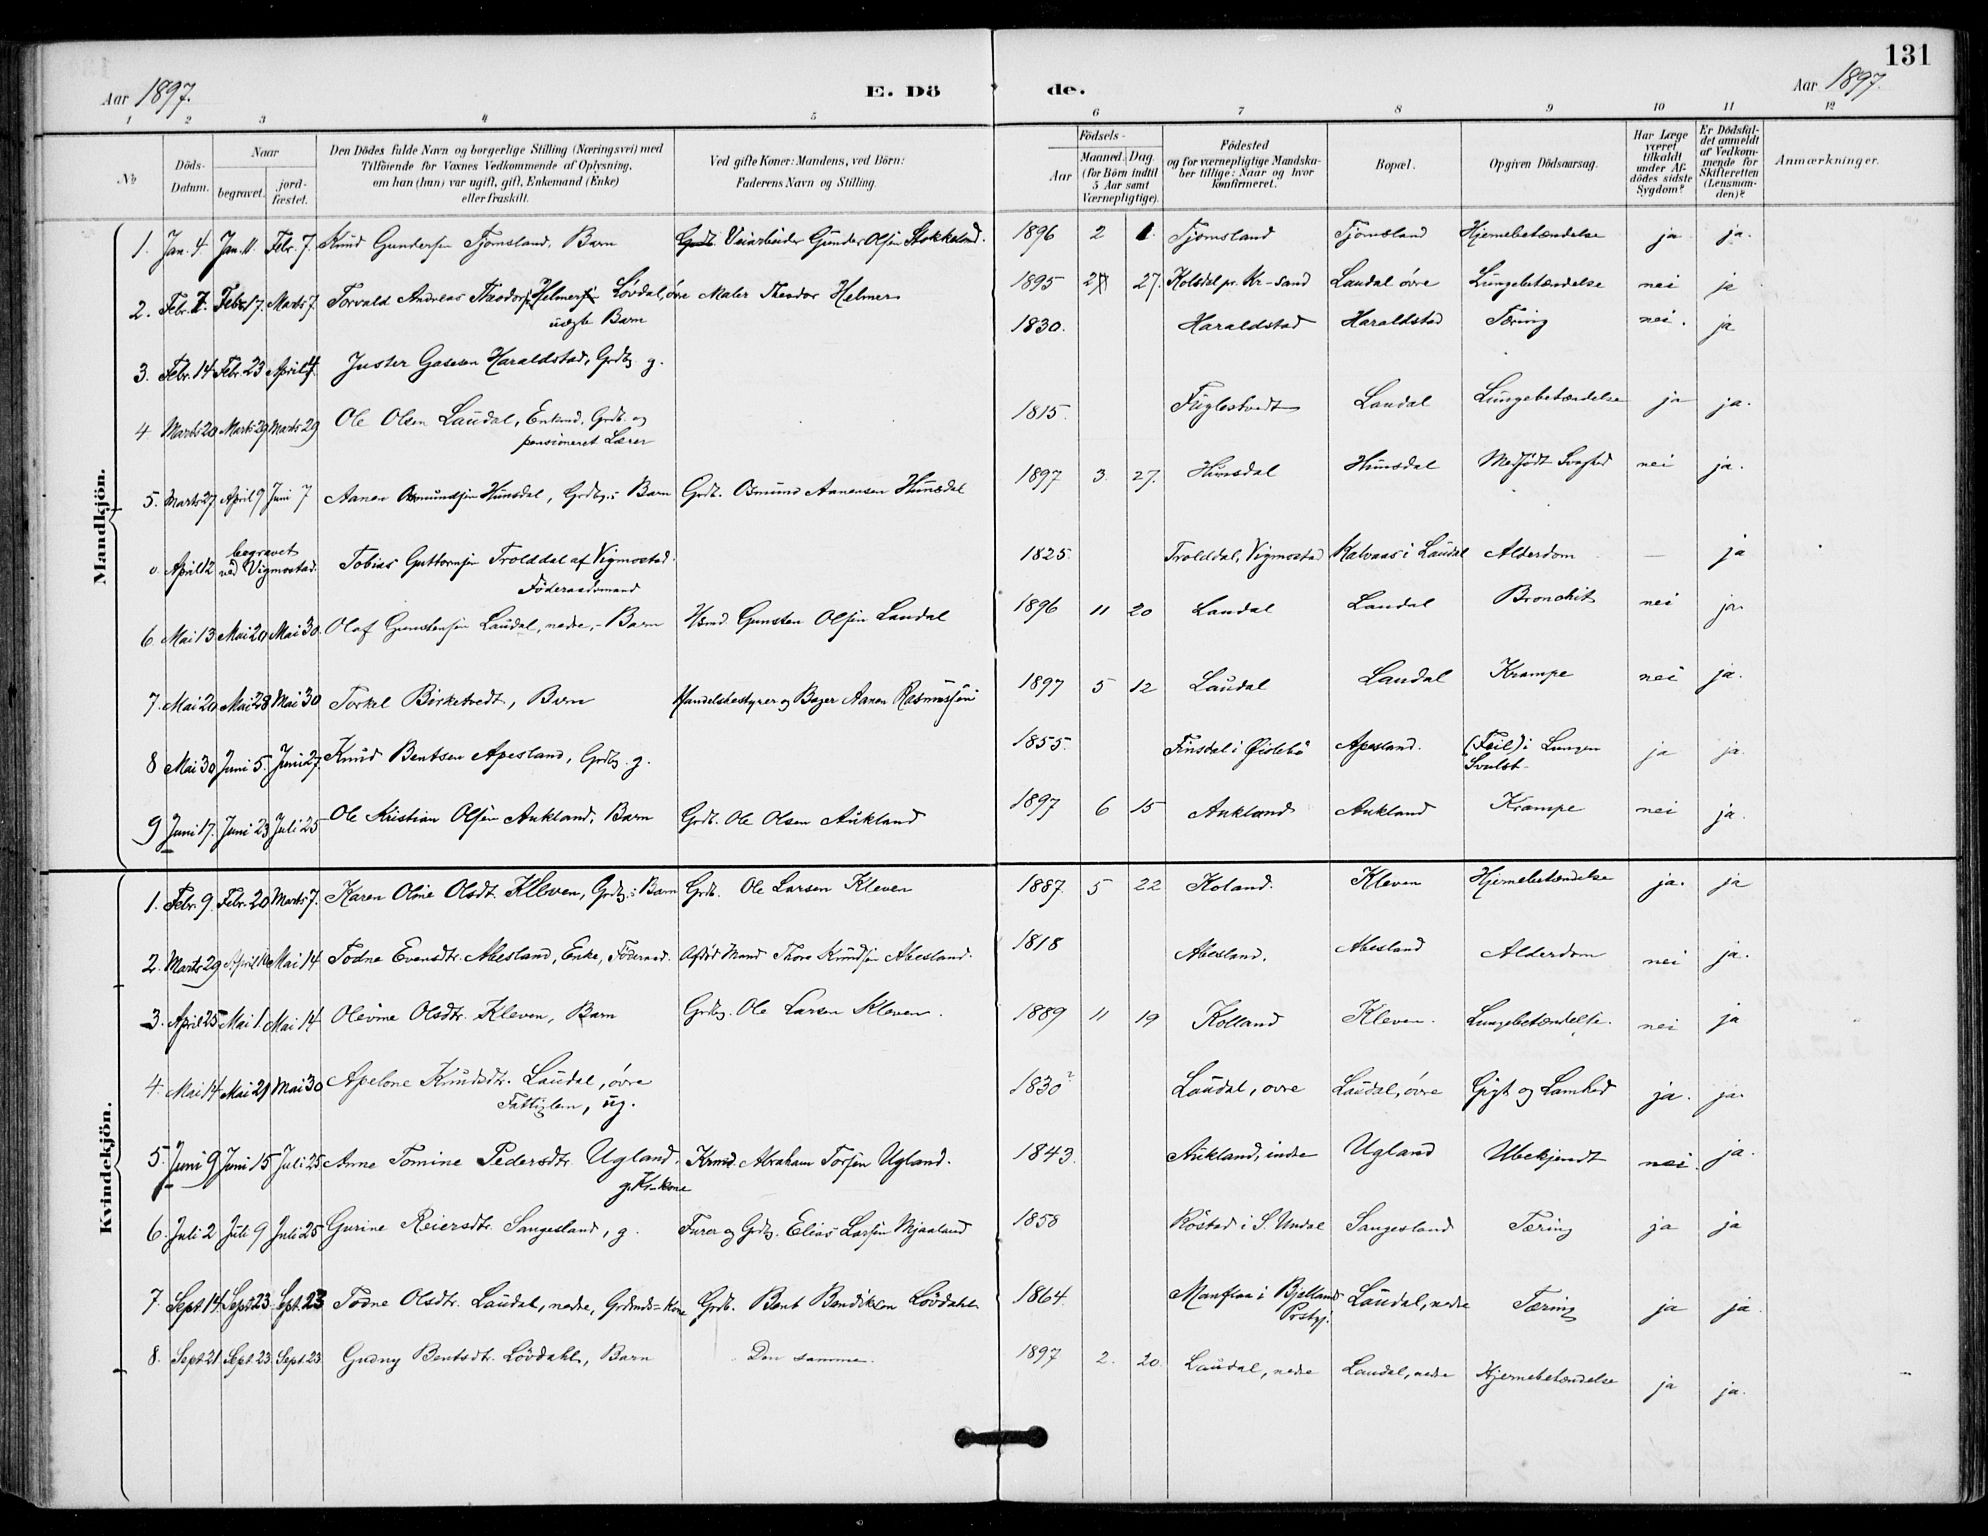 131
Aar 1897.
E. Dö de.
Aar 1897.
1 2 3 4 5 6 7 8 9 10 11 12
No
Döds-Datum.
Naar
begravet. jord-fæstet.
Den Dödes fulde Navn og borgerlige Stilling (Næringsvei) med
Tilföiende for Voxnes Vedkommende af Oplysning,
om han (hun) var ugift, gift, Enkemand (Enke)
eller fraskilt.
Ved gifte Koner: Mandens, ved Börn:
Faderens Navn og Stilling.
Födsels-
Aar Maaned. Dag
(for Börn indtil 5 Aar samt Værnepligtige).
Födested
og for værnepligtige Mandska-
ber tillige: Naar og hvor
konfirmeret.
Bopæl.
Opgiven Dödsaarsag.
Har Læge været tilkaldt under Af-dödes sidste Sygdom?
Er Dödsfal-det anmeldt af Vedkom-mende for Skifteretten (Lensman-den)?
Anmærkninger.
Mandkjön.
1. Jan. 4. Jan. 11. Febr. 7. Knud Gundersen Tjomsland, Barn Grdb. Veiarbeider Gunder Olsen Stokkeland. 1896 2 1. Tjomsland Tjomsland Hjernebetændelse ja ja.
2. Febr. 7. Febr. 17. Marts 7. Torvald Andreas Theodorsen Helmersen Lövdal, övre Maler Theodor Helmers 1895 27. Kolsdal pr. Kr-sand Laudal övre Lungebetændelse nei ja
uægte Barn
3. Febr. 14 Febr. 23 April 4. Juster Gasesen Haraldstad, Grdbg. g. 1830. Haraldstad Haraldstad Tæring nei. ja
4 Marts 20 Marts 29 Marts 29 Ole Olsen Laudal, Enkmd, Grdb. og 1815. Fuglestvedt Laudal Lungebetændelse ja ja.
pensioneret Lærer
5. Marts 27. April 9 Juni 7 Aanen Osmundsen Hunsdal, Grdbg.s Barn Grdb. Osmund Aanensen Hunsdal 1897 3. 27. Hunsdal Hunsdal Medfödt Svaghed nei ja.
0. April 12 begravet ved Vigmostad. Tobias Guttormsen Trolddal af Vigmostad. 1825. Trolddal, Vigmostad Kalvaas i Laudal Alderdom — ja
Föderaadsmand
6. Mai 13 Mai 20 Mai 30. Olaf Gunstensen Laudal, nedre, - Barn Hsmd Gunsten Olsen Laudal 1896 11 20 Laudal Laudal Bronchit nei ja.
7. Mai 20 Mai 28 Mai 30 Torkel Birketvedt, Barn Handelsbestyrer og Bager Aanen Rasmussen 1897 5 12 Laudal Laudal Krampe nei ja.
8 Mai 30 Juni 5. Juni 27. Knud Bentsen Apesland, Grdbg. g. 1855. Finsdal i Øislebö Apesland. (Feil) i Lungen ja ja.
Svulst
9 Juni 17. Juni 23 Juli 25 Ole Kristian Olsen Aukland, Barn Grdb. Ole Olsen Aukland 1897 6 15 Aukland Aukland Krampe nei ja.
Kvindekjön.
1. Febr. 9. Febr. 20 Marts 7. Karen Oline Olsdt. Kleven, Grdbg.s Barn Grdb. Ole Larsen Kleven 1887. 5 22 Koland. Kleven Hjernebetændelse ja. ja
2. Marts 29 April Mai 14 Todne Evensdtr. Abesland, Enke, Föderaad. Afdöd Mand Thore Knudsen Abesland. 1818 Abesland. Abesland Alderdom nei ja.
3. April 25 Mai 1 Mai 14 Olevine Olsdtr. Kleven, Barn Grdbg. Ole Larsen Kleven. 1889 11 19 Kolland Kleven. Lungebetændelse. nei ja
4. Mai 14 Mai 21 Mai 30 Apelone Knudsdtr. Laudal, övre 1830? Laudal, ovre Laudal, övre Gigt og Lamhed ja. ja.
Fattiglem, ug.
5. Juni 9 Juni 15 Juli 25 Anne Tomine Pedersdtr. Ugland, Krmd. Abraham Torsen Ugland. 1843. Aukland, indre Ugland Ubekjendt nei. ja.
g. Kr-kone
6. Juli 2 Juli 9 Juli 25 Gurine Reiersdtr. Sangesland, g. Furer og Grdbg. Elias Larsen Mjaaland 1858 Röstad i S. Undal Sangesland Tæring ja ja
7. Sept. 14 Sept. 23 Sept. 23 Todne Olsdtr. Laudal, nedre, Grdmds-Kone Grdb. Bent Bendiksen Lövdahl 1864. Manflaa i Bjelland Prstgj. Laudal, nedre Tæring ja ja.
8. Sept. 21 Sept. 23 Sept. 23 Gudny Bentsdtr. Lövdahl, Barn Den samme. 1897 2. 20. Laudal, nedre Laudal, nedre Hjernebetændelse ja ja.